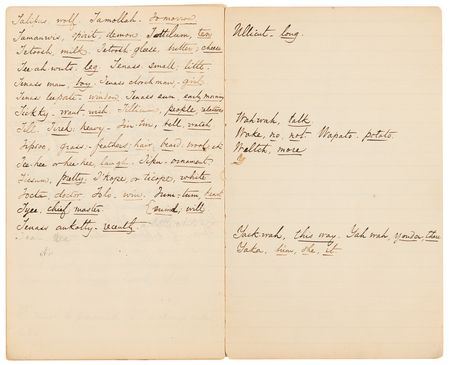 Talibus, wolf. Tamollah. to-morrow
Tamanwis, spirit, demon. Tattelum, ten
Tetoosh, milk. Tetosh glease, butter, cheese
Tee-ah-wits. leg. Tenass. small, little.
Tenass man, boy. Tenass clootchman - girl
Tenass window. Tenass sun. early morning
Tickky - want, wish. Tillicum, people, relatives
Till. Tired, heavy - Tin-tin, bell, watch
Tipsoe, grass - feathers, hair, beard, wool, etc
Tee-hee or hee-hee, laugh. ornament
pretty. T'kope or tecope, white
Tocta, doctor. Tolo - win. Tum-tum, heart
Tyee, chief, master. { mind, will
Tenass ankotty - recently
Ullicut - long.
Wahwah, talk.
Wake, no, not. Wapato. potato.
Weltch, more
Yackwah, this way. Yahwah, yonder, there
Yaka. him, she, it